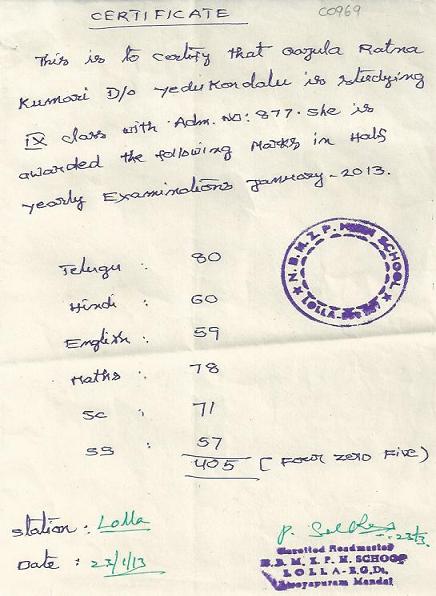 CERTIFICATE
C0969
This is to certify that Gazula Ratna
Kumari D/o Yedukondalu is studying
IX class with Adm. NO: 877. She is
awarded the following Marks in Half
yearly Examinations January - 2013.
Telugu : 80
Hindi : 60
English : 59
Maths : 78
Sc : 71
SS : 57
405 [ Four zero Five )
N.B.M.Z.P. HIGH SCHOOL
LOLLA
station : Lolla
Date : 23/1/13
Gazetted Headmaster
N.B.M.Z.P.H. SCHOOL
LOLLA-E.G.Dt.
Mandal